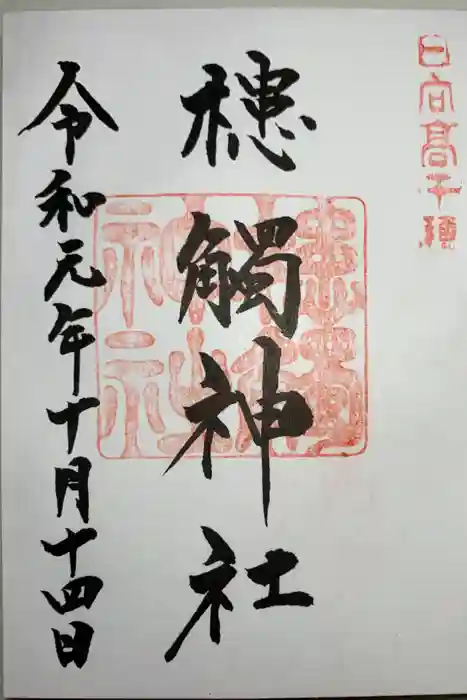 日向高千穂
穂觸神社
令和元年十月十四日